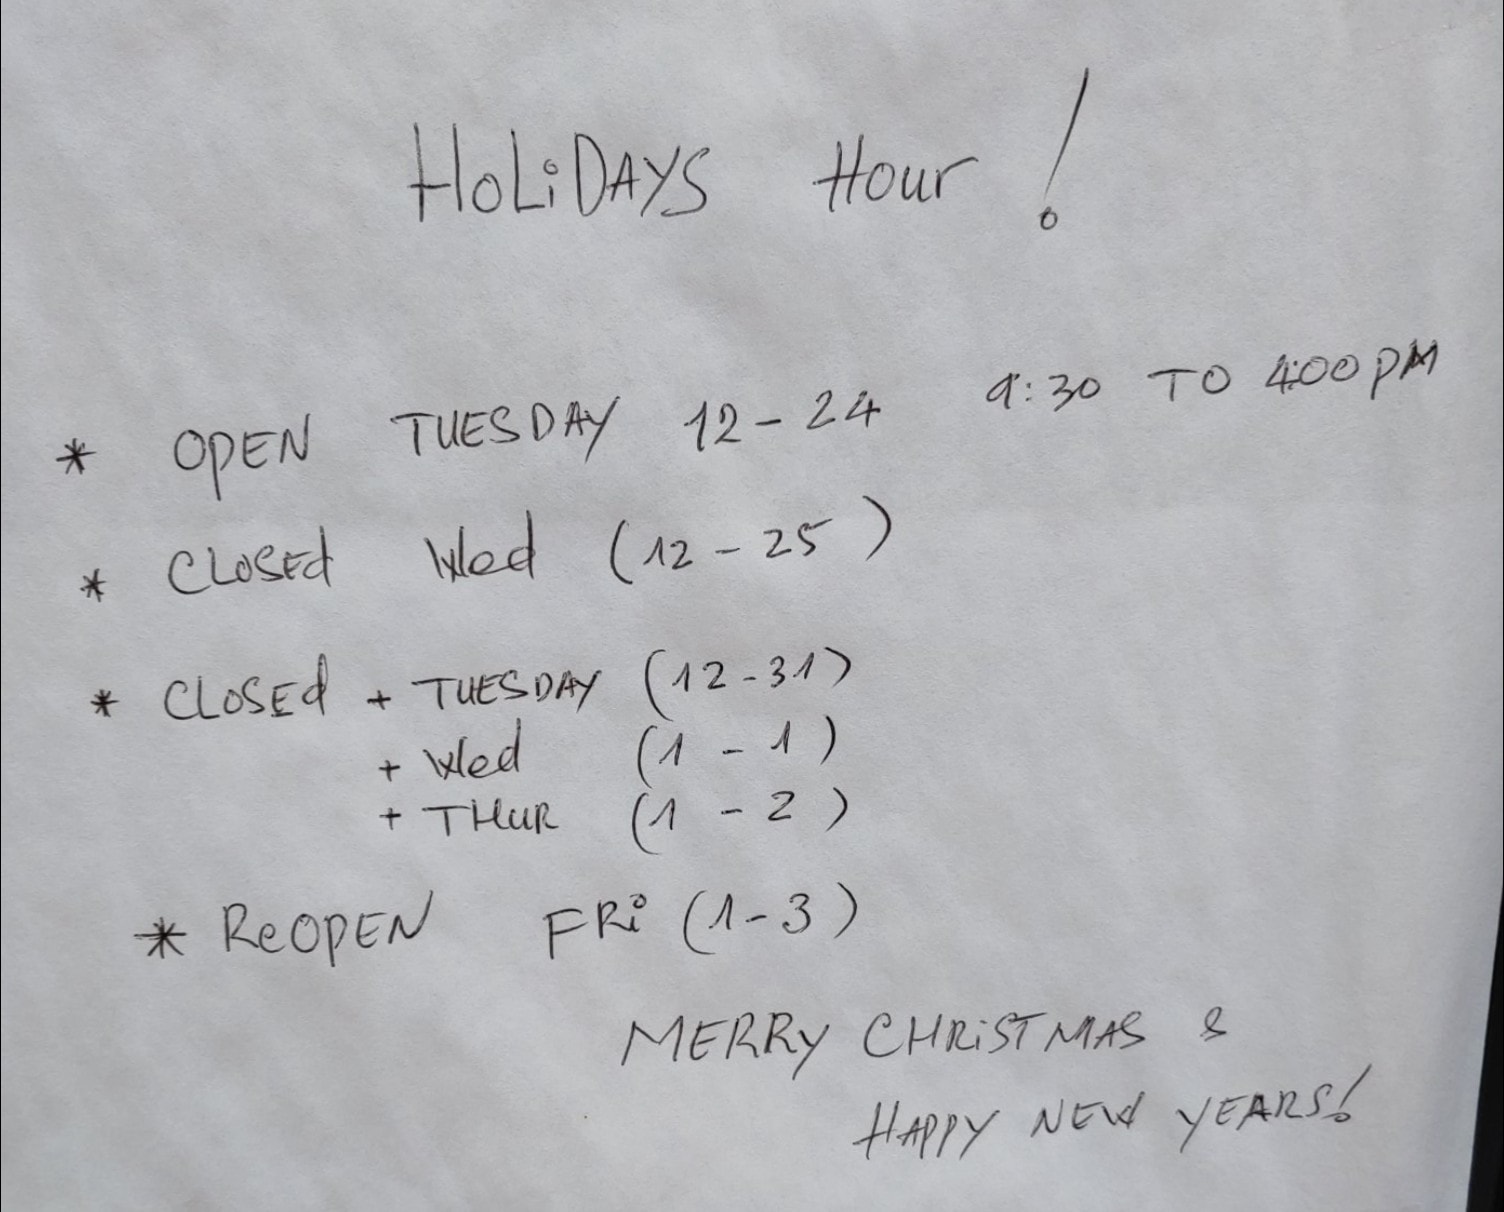 HoLiDAYS Hour!
* OPEN TUESDAY 12-24 9:30 TO 4:00PM
* CLOSEd Wed (12-25)
* CLOSEd + TUESDAY (12-31)
+ Wed (1-1)
+ THUR (1-2)
* ReOPEN FRi (1-3)
MERRY CHRiSTMAS &
HAPPY NEW YEARS!